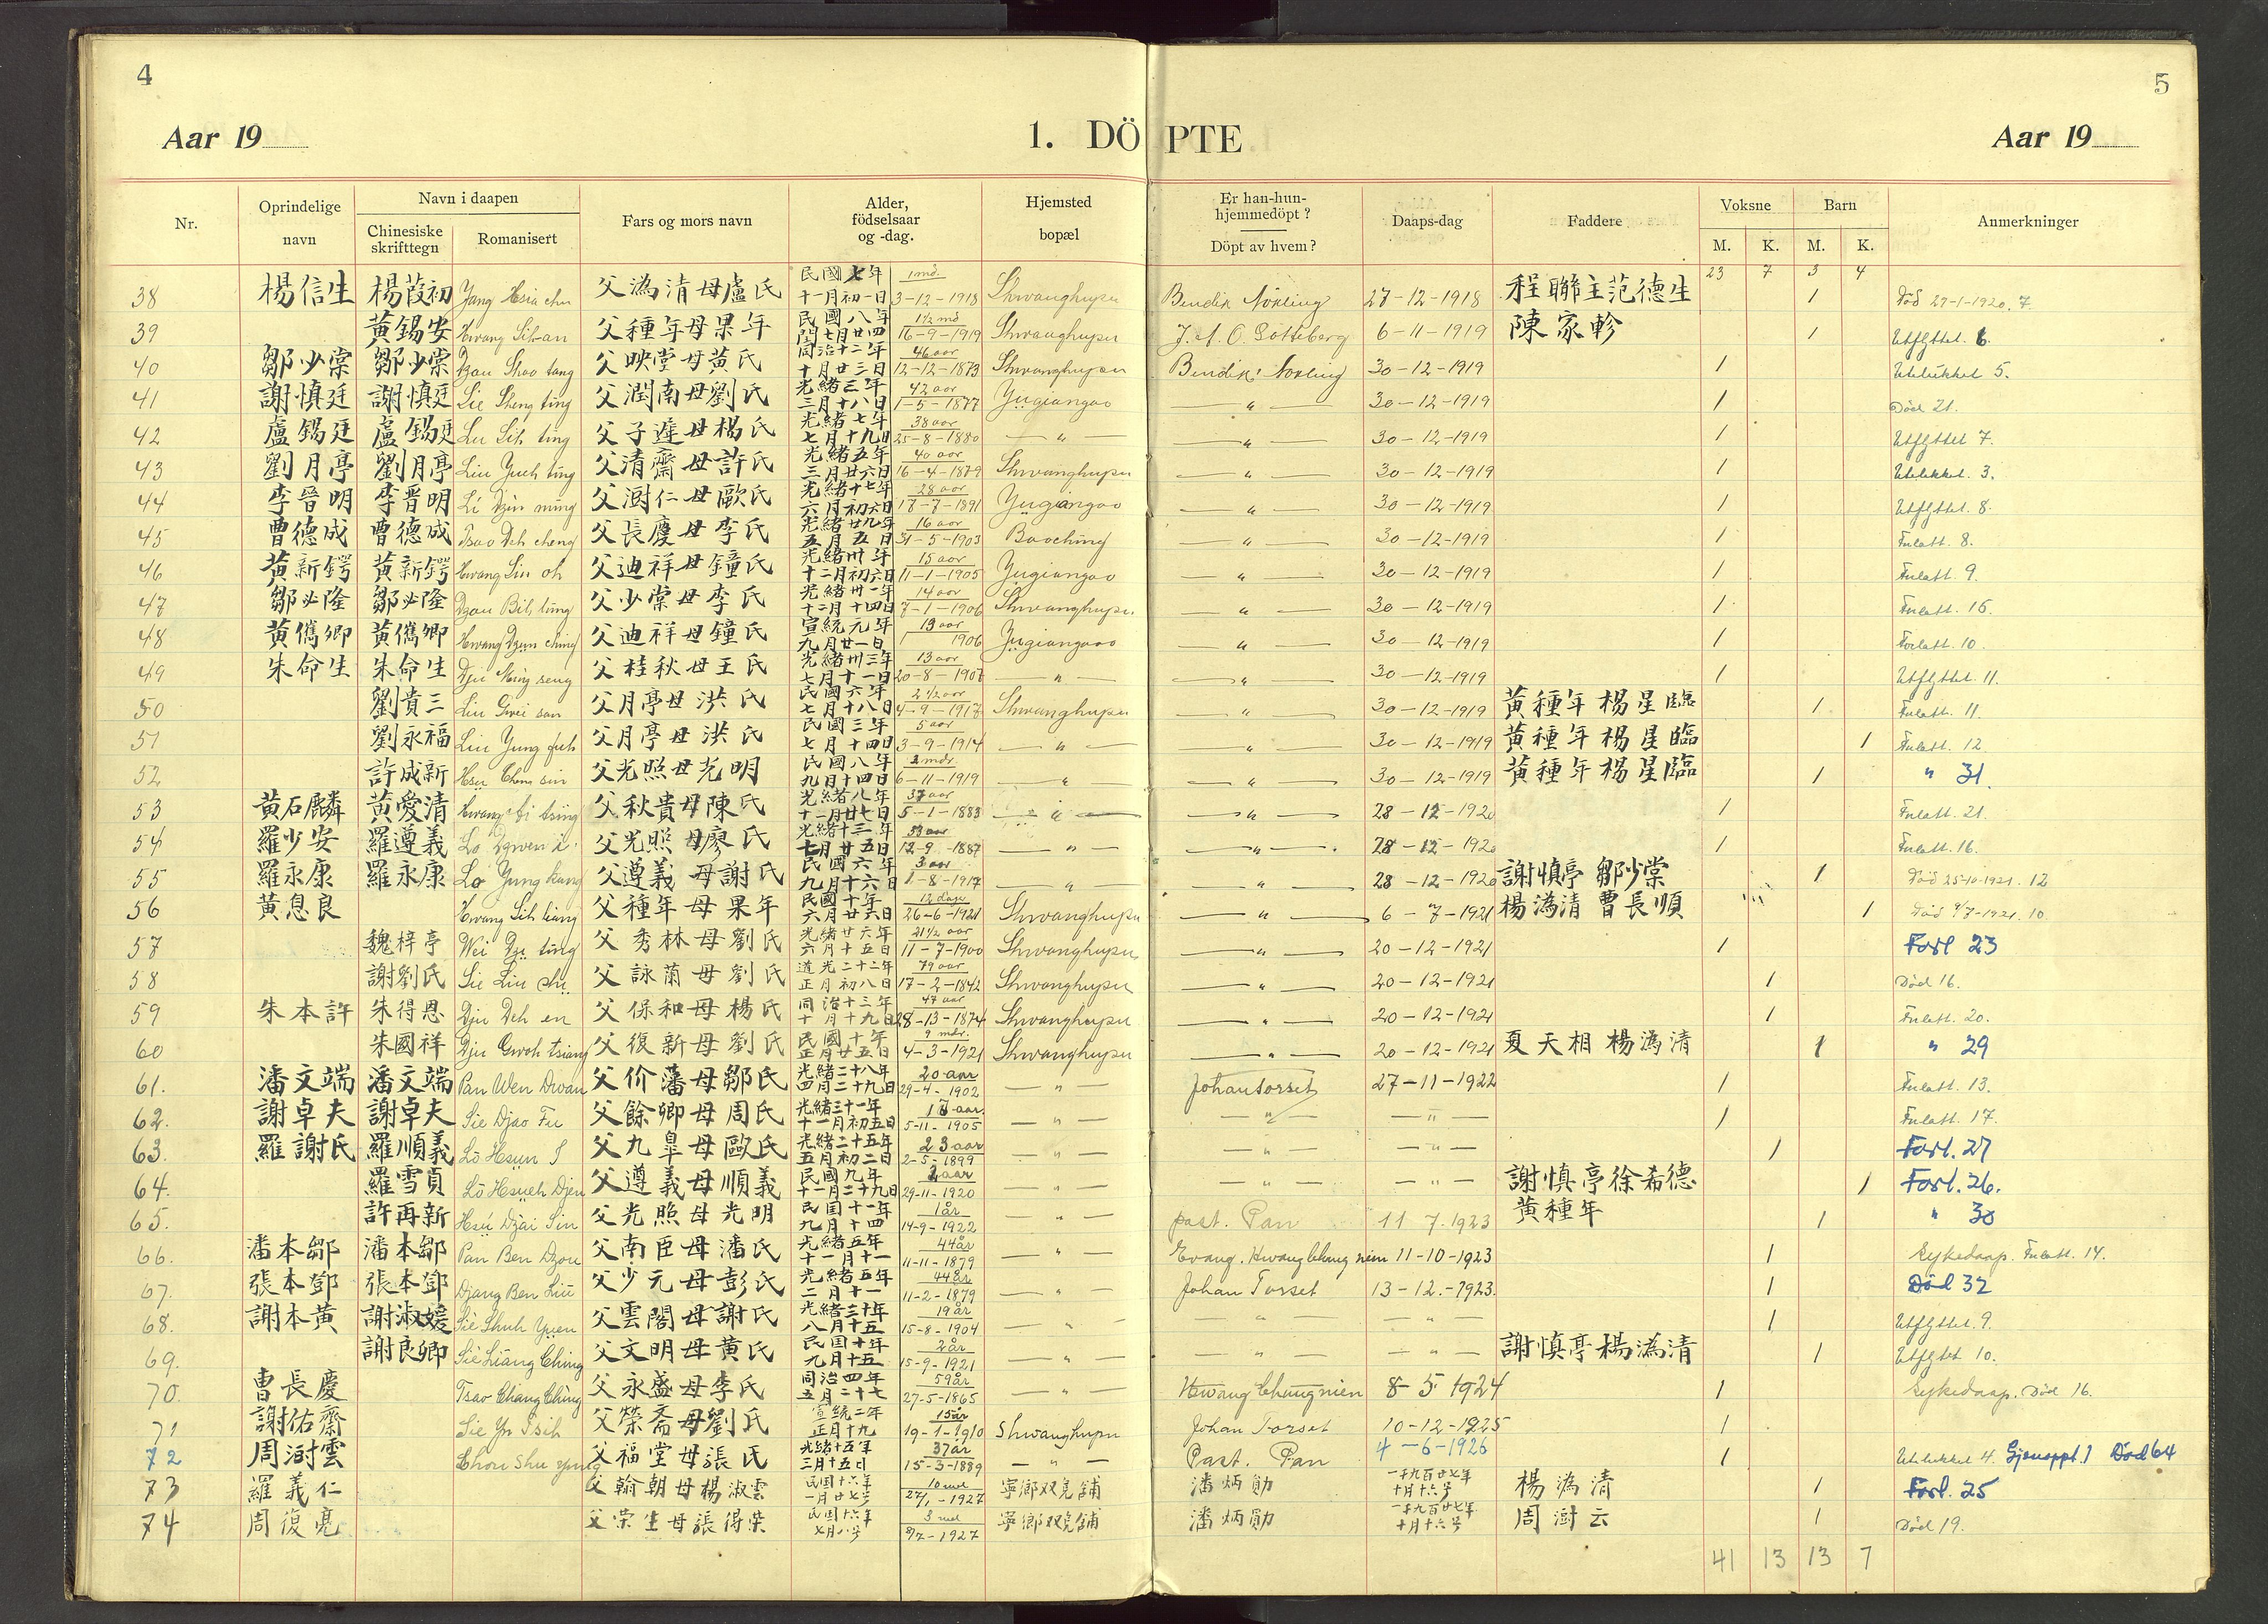 4
5
Aar 19
1. DÖPTE
Aar 19
Nr.
Oprindelige navn
Navn i daapen
Chinesiske skrifttegn
Romanisert
Fars og mors navn
Alder, födselsaar og -dag.
Hjemsted bopæl
Er han-hun-hjemmedöpt?
Döpt av hvem?
Daaps-dag
Faddere
Voksne
M. K.
Barn
M. K.
Anmerkninger
23 7 3 4
38 楊信生 楊葭初 Yang Hsia chu 父溈清母盧氏 民國七年十一月初一日 1 md. 3-12-1918 Shwanghupu Bendik Noxling 27-12-1918 程聯主范德生 1 Död 29-1-1920. 7
39 黃錫安 Hwang Sih-an 父種年母果年 民國八年閏七月廿四 1½ md 16-9-1919 Shwanghupu J. A. O. Gotteberg 6-11-1919 陳家軫 1 Utflyttet. 6.
40 鄒少棠 鄒少棠 Dzou Shao tang 父映堂母黃氏 同治十二年十月廿三日 46 aar 12-12-1873 Shwanghupu Bendik Noxling 30-12-1919 1 Utelukket 5.
41 謝慎廷 謝慎廷 Sie Sheng ting 父潤南母劉氏 光緒三年三月十八日 42 aar 1-5-1877 Yugiangao — " — 30-12-1919 1 Död 21.
42 盧錫廷 盧錫廷 Lu Sih ting 父子遲母楊氏 光緒七年七月十九日 38 aar 25-8-1880 — " — — " — 30-12-1919 1 Utflyttet 7.
43 劉月亭 劉月亭 Liu Yueh ting 父清齋母許氏 光緒五年三月廿六日 40 aar 16-4-1879 Shwanghupu — " — 30-12-1919 1 Utelukket. 3.
44 李晉明 李晉明 Li Dzin ming 父澍仁母歐氏 光緒十七年六月初六日 28 aar 17-7-1891 Yugiangao — " — 30-12-1919 1 Utflyttet. 8.
45 曹德成 曹德成 Tsao Deh cheng 父長慶母李氏 光緒廿九年五月五日 16 aar 31-5-1903 Baoching — " — 30-12-1919 1 Forlatt. 8.
46 黃新鍔 黃新鍔 Hwang Sin oh 父迪祥母鐘氏 光緒卅年十二月初六日 15 aar 11-1-1905 Yugiangao — " — 30-12-1919 1 Forlatt. 9.
47 鄒必隆 鄒必隆 Dzou Bih lung 父少棠母李氏 光緒卅一年十二月十四日 14 aar 7-1-1906 Shwanghupu — " — 30-12-1919 1 Forlatt. 15.
48 黃儁卿 黃儁卿 Hwang Dzun ching 父迪祥母鐘氏 宣統元年九月廿一日 13 aar 1906 Yugiangao — " — 30-12-1919 1 Forlatt. 10.
49 朱命生 朱命生 Dju Ming seng 父桂秋母王氏 光緒卅三年七月十一日 13 aar 20-8-1907 — " — — " — 30-12-1919 1 Utflyttet. 11.
50 劉貴三 Liu Gwei san 父月亭母洪氏 民國六年七月十八日 2½ aar 4-9-1917 Shwanghupu — " — 30-12-1919 黃種年楊星臨 1 Forlatt. 11.
51 劉永福 Liu Yung fuh 父月亭母洪氏 民國三年七月十四日 5 aar 3-9-1914 — " — — " — 30-12-1919 黃種年楊星臨 1 Forlatt. 12
52 許成新 Hsu Cheng sin 父光照母光明 民國八年九月十四日 2 mdr. 6-11-1919 — " — — " — 30-12-1919 黃種年楊星臨 1 " 31
53 黃石麟 黃愛清 Hwang Ai tsing 父秋貴母陳氏 光緒八年十一月廿七日 37 aar 5-1-1883 — " — — " — 28-12-1920 1 Forlatt. 21.
54 羅少安 羅遵義 Lo Dzwen i 父光照母廖氏 光緒十三年七月廿五日 33 aar 12-9-1887 — " — — " — 28-12-1920 1 Forlatt. 16.
55 羅永康 羅永康 Lo Yung kang 父遵義母謝氏 民國六年九月十六日 3 aar 1-8-1917 — " — — " — 28-12-1920 謝慎亭 鄒少棠 1 Död 25-10-1921. 12
56 黃息良 Hwang Sih liang 父種年母果年 民國十年六月廿六日 12 dage 26-6-1921 Shwanghupu — " — 6-7-1921 楊溈清 曹長順 1 Död 9/7-1921. 10.
57 魏梓亭 Wei Dzu ting 父秀林母劉氏 光緒廿六年六月十五日 21½ aar 11-7-1900 Shwanghupu — " — 20-12-1921 1 Forl 23
58 謝劉氏 Sie Liu shï 父詠蘭母劉氏 道光二十二年正月初八日 79 aar 17-2-1842 Shwanghupu — " — 20-12-1921 1 Död 16.
59 朱本許 朱得恩 Dju Deh en 父保和母楊氏 同治十三年十月十九日 47 aar 28-13-1874 Shwanghupu — " — 20-12-1921 1 Forlatt. 20.
60 朱國祥 Dju Gwoh tsiang 父復新母劉氏 民國十年正月廿五日 9 mdr. 4-3-1921 Shwanghupu — " — 20-12-1921 夏天相 楊溈清 1 " 29
61. 潘文端 潘文端 Pan Wen Dwan 父价藩母鄒氏 光緒二十八年四月二十九日 20 aar 29-4-1902 — " — Johan Torset 27-11-1922 1 Forlatt. 13.
62. 謝卓夫 謝卓夫 Sie Djao Fu 父餘卿母周氏 光緒三十一年十一月初五日 17 aar. 5-11-1905 — " — — " — — " — 1 Forlatt. 17.
63. 羅謝氏 羅順義 Lo Hsun I 父九皐母歐氏 光緒二十五年五月初二日 23 aar 2-5-1899 — " — — " — — " — 1 Forl. 27
64. 羅雪貞 Lo Hsueh Djen 父遵義母順義 民國九年十一月二十九日 2 aar 29-11-1920 — " — — " — — " — 謝慎亭徐希德 1 Forl. 26.
65. 許再新 Hsu Dzai Sin 父光照母光明 民国十一年九月十四 1 år 14-9-1922 — " — past. Pan 11 7.1923 黃種年 1 " 30
66. 潘本鄒 潘本鄒 Pan Ben Dzou 父南臣母潘氏 光緒五年十一月十一 44 år 11-11-1879 — " — Evang. Hwang Chung nien 11-10-1923 1 Sykedaap. Forlatt. 14.
67. 張本鄧 張本鄧 Djang Ben 父少元母彭氏 光緒五年二月十一 44 år 11-2-1879 — " — Johan Torset 13-12.-1923. 1 Död 32
68. 謝本黃 謝淑媛 Sie Shuh Yuen 父雲閣母謝氏 光緒三十年八月十五 19 år 15-8-1904 — " — — " — — " — 1 Utflyttet. 9.
69. 謝良卿 Sie Liang Ching 父文明母黃氏 民囯十年九月十五 2 år 15-9-1921 — " — — " — — " — 謝慎亭楊溈清 1 Utflyttet 10.
70. 曹長慶 Tsao Chang Ching 父永盛母李氏 同治四年五月二十七 59 år 27-5-1865 — " — Hwang Chung nien 8-5-1924 1 Sykedaap. Död 16.
71 謝佑齋 Sie Yu Tsih 父榮斋母劉氏 宣統二年正月十九 15 år 19-1-1910 Shwanghupu Johan Torset 10-12-1925 1
72 周澍雲 Chou Shu yun 父福堂母張氏 光緒十五年三月十五日 37 år 15-3-1889 — " — Past. Pan 4-6-1926 1 Utelukket 4. Gjenoppt. 1 Död 64
73 羅義仁 父翰朝母楊淑雲 民国十六年一月廿七 10 md 27/1-1927 寧鄉双凫鋪 潘炳勛 一千九百廿七年十月十六号 楊溈清 1 Forl. 25
74 周復亮 父荣生母張得榮 民国十六年七月八号 3 md 8/7-1927 寧鄉双凫鋪 潘炳勛 一千九百廿七年十月十六号 周澍云 1 Död 19.
41 13 13 7